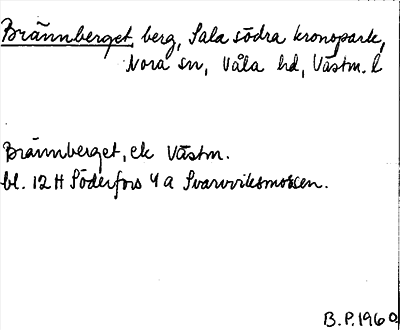 Brännberget, berg, Sala södra kronopark,
Nora sn, Våla hd, Västm. l
Brännberget, ek Västm.
bl. 12 H Söderfors 4 a Svarvviksmossen.
B.P. 1960